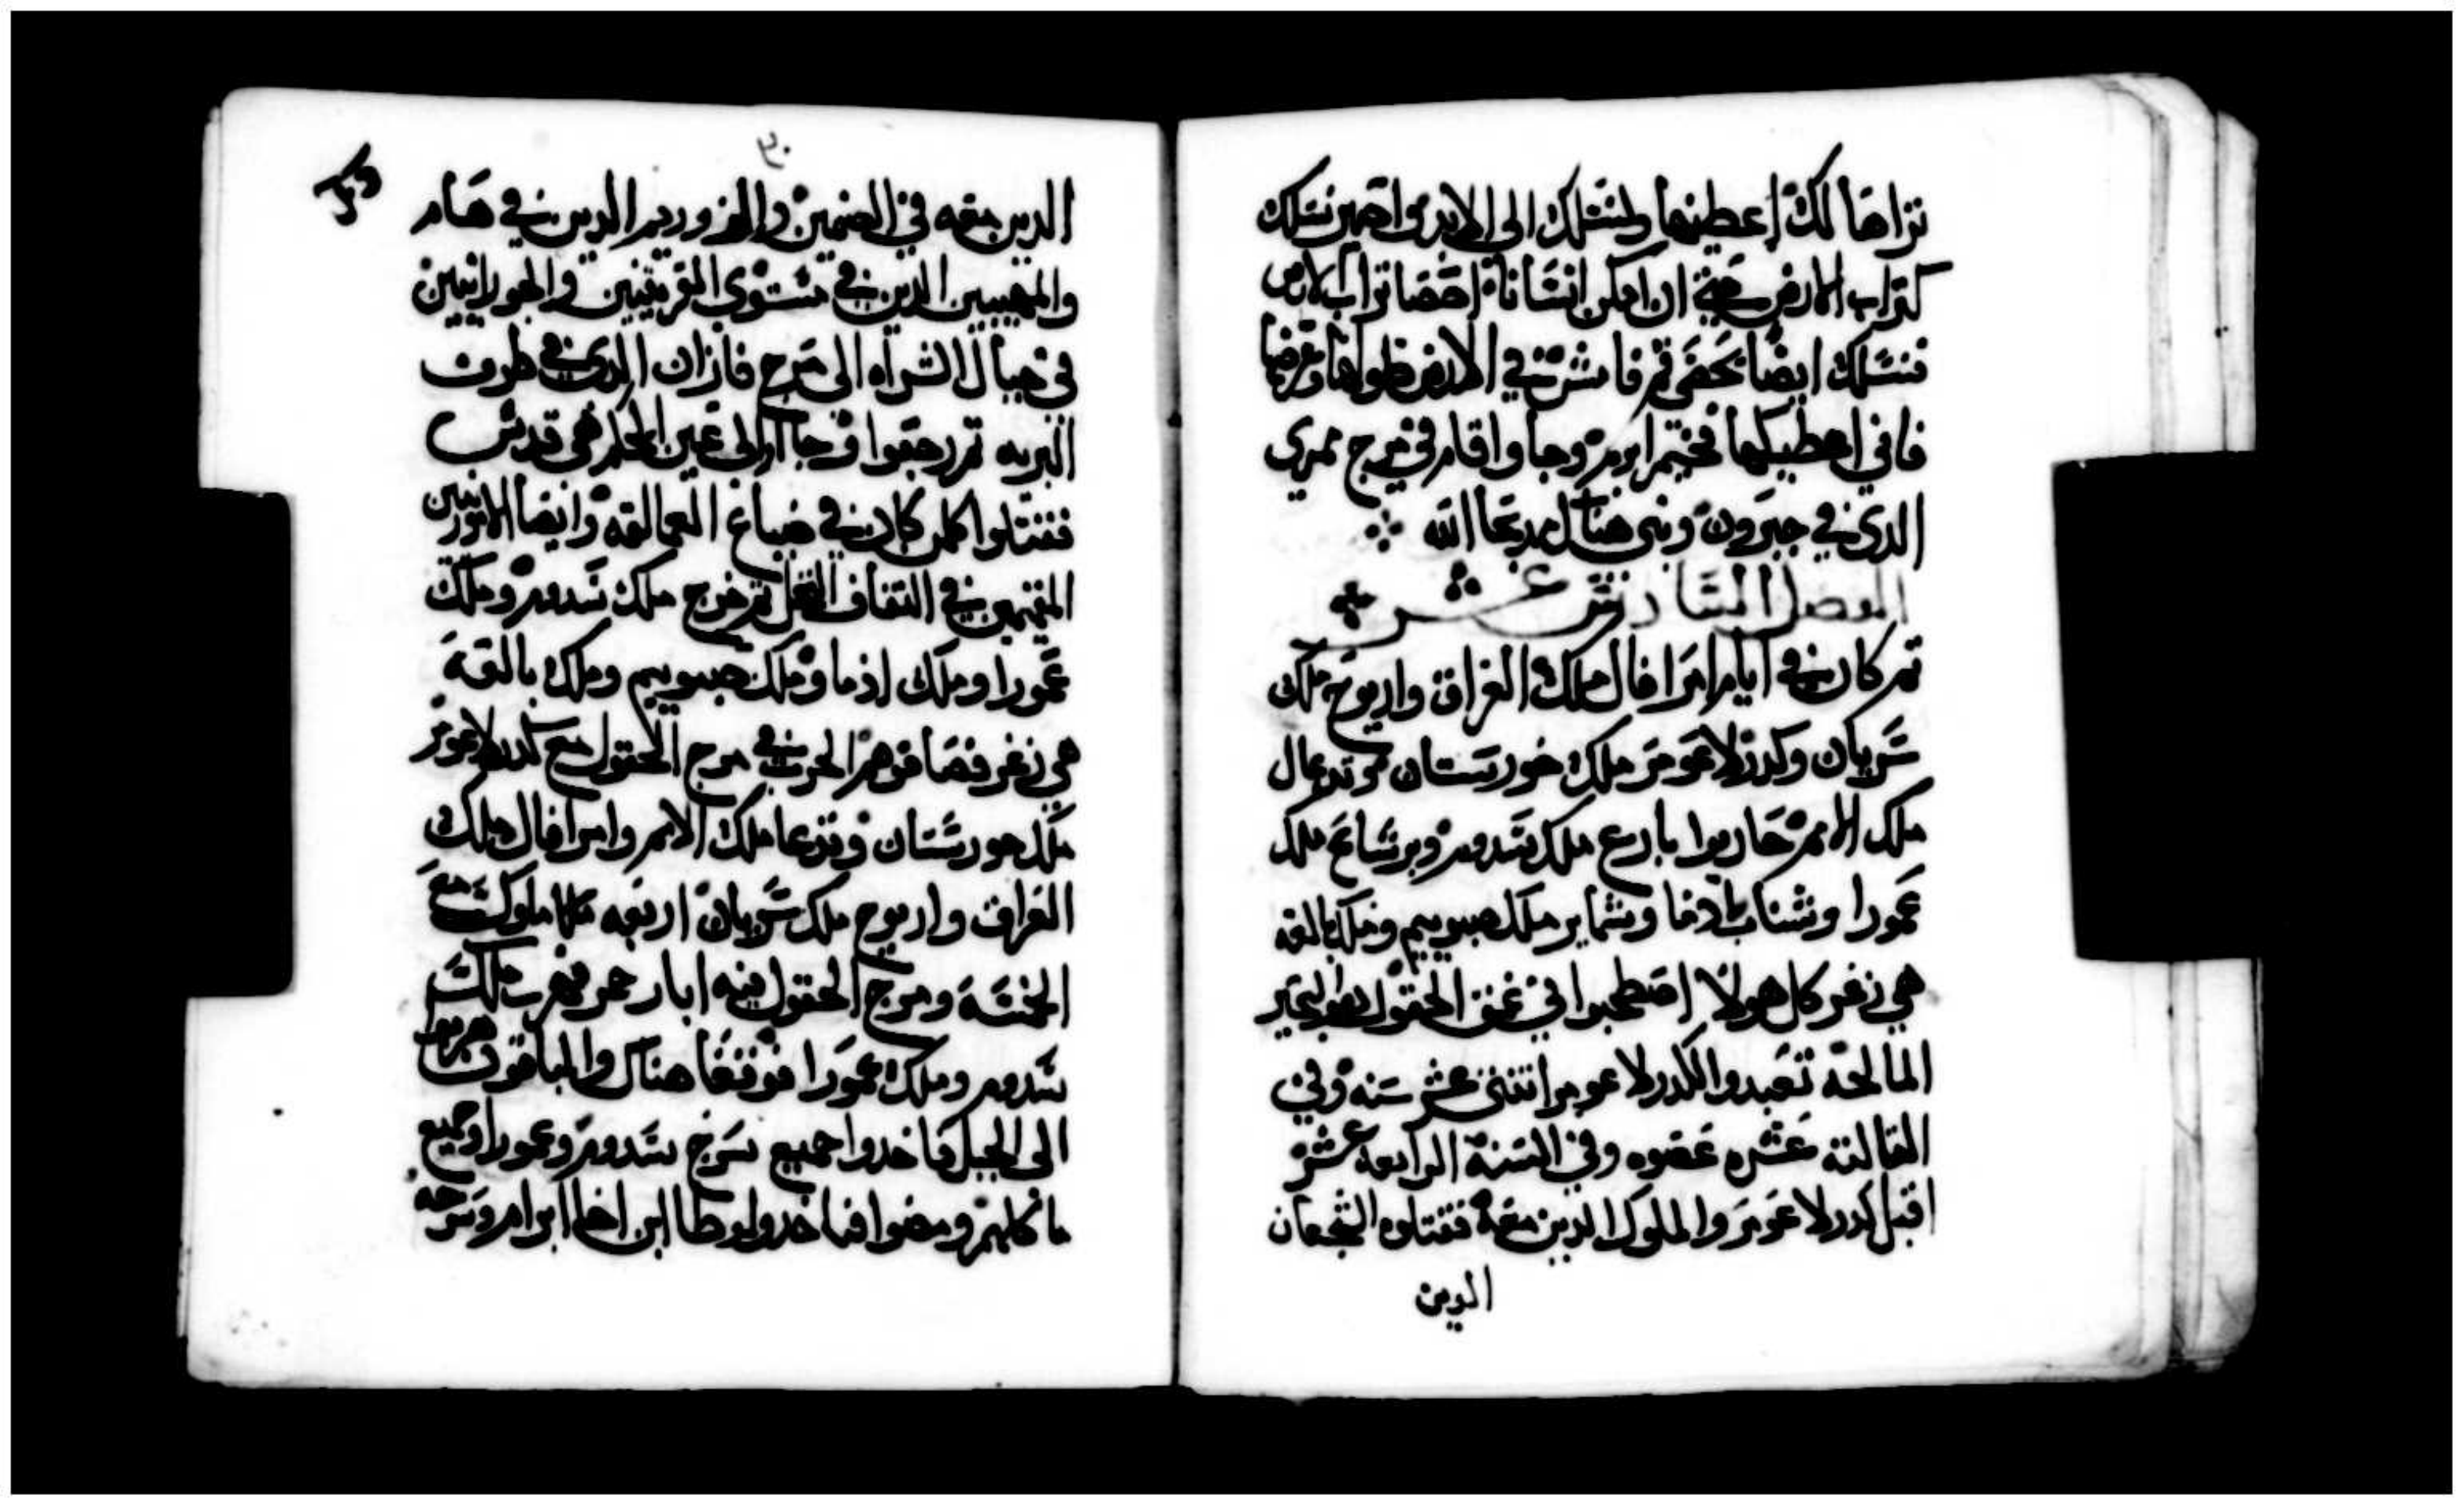 تراها لك اعطيها ولنسلك الى الابد واصير نسلك
كتراب الارض حتي ان امكن انسانا احصا تراب الارض
فنسلك ايضا يحصى قم فامش في الارض طولها وعرضها
فاني اعطيكها فخيم ابرم وجا واقام في مرج ممري
الدي في حبرون وبنى هناك مدبحا الله
الفصل السادس عشر
تم كان في ايام امرافال ملك العراق واريوح ملك
سريان وكدرلاعومر ملك خورستان وتدعال
ملك الامم حاربوا بارع ملك سدوم وبرشاع ملك
عمورا وشناب ادما وشماير ملك صبوييم وملك بالقه
هي زغر كل هولا اصطحبوا في عمق الحقول وهو البحير
المالحه تعبدوا لكدرلاعومر اتنتى عشر سنه وفي
التالته عشره عصوه وفي السنه الرابعه عشر
اقبل كدرلاعومر والملوك الدين معه فقتلوه الشجعان
الدين
٣٠
الدين معه في الصنمين والزوزيم الدين في هام
والمهيبين الدين في مستوى القريتين والحورانيين
في جبال الشراه الى مرج فازان الدي في طرف
البريه تم رجعوا وجا الى عين الحكم هي قدس
فقتلوا كلمن كان في ضياع العمالقه وايضا الامورنيين
المقيمين في التفاف النخل تم خرج ملك سدوم وملك
عمورا وملك ادما وملك صبوييم وملك بالقه
هي زغر فصافوهم الحرب في مرج الحقول مع كدرلاعومر
ملك خورستان وتدعا ملك الامم وامرافال ملك
العراق واريوح ملك سريان اربعه ملوك مع
الخمسه ومرج الحقول فيه ابار حمر فهرب ملك
سدوم وملك عمورا فوقعا هناك والباقون هربوا
الى الجبل فاخدوا جميع سرح سدوم وعمورا وجميع
ماكلهم ومضوا فاخدوا لوطا ابن اخا ابرام وسرحه